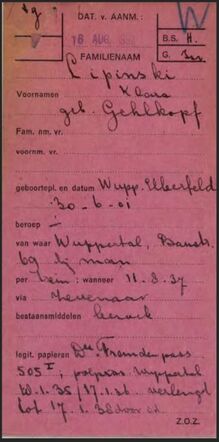 DAT. v. AANM.:
W
18 AUG.
B.S. H.
G.
FAMILIENAAM
Lipinski
Voornamen Klara
geb. Gehlkopf
Fam. nm. vr.
voornm. vr.
geboortepl. en datum Wupp. Elberfeld
30-6-01
beroep –
van waar Wuppertal,
69 bij man
per trein; wanneer 11-8-37
via Zevenaar
bestaansmiddelen bezoek
legit. papieren De Fremdenpass
505 polpraes Wuppertal
17.1.36 verlengd
tot 17-1-38 door
Z.O.Z.